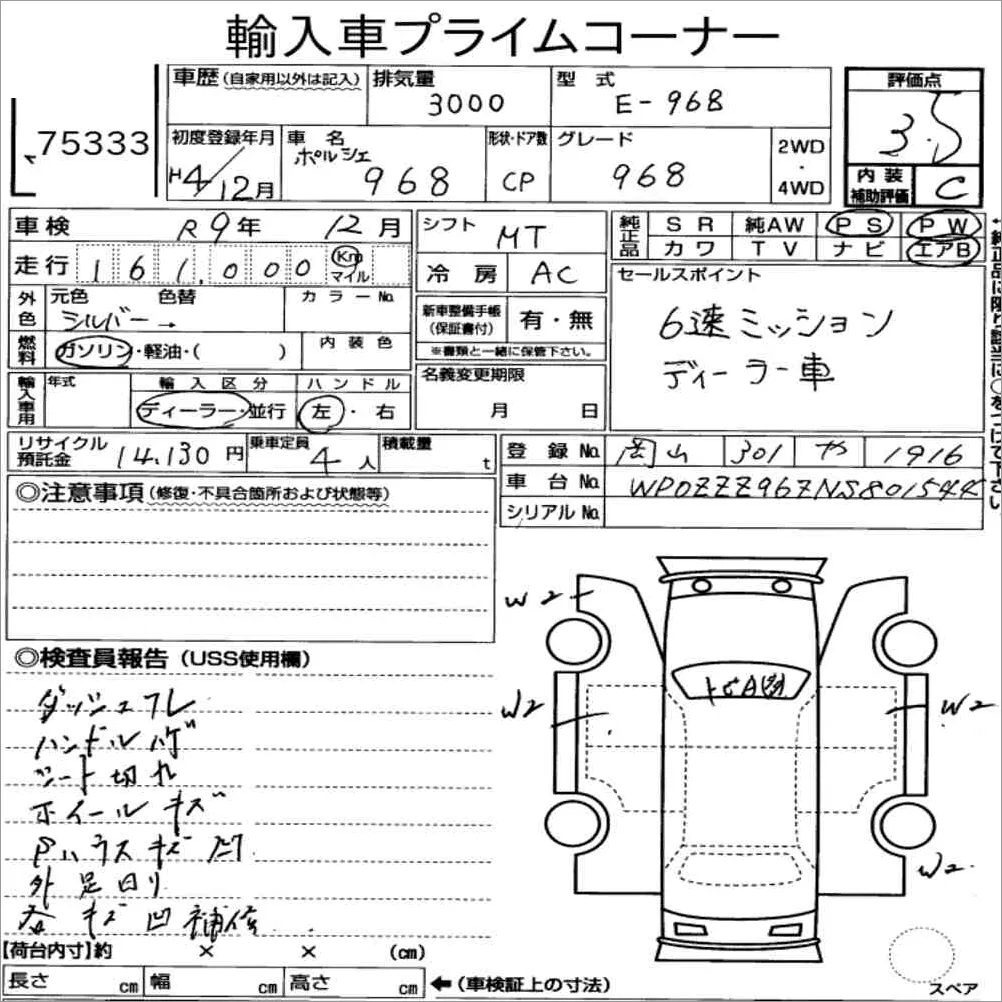 輸入車プライムコーナー
75333
車歴 (自家用以外は記入) 排気量 3000 型式 E-968
評価点 3.5
初度登録年月 H4/12月 車名 ポルシェ 968 形状・ドア数 CP グレード 968 2WD・4WD
内装補助評価 C
車検 R9年 12月
走行 161,000 Km マイル
外色 元色 シルバー→ 色替 カラーNo.
燃料 ガソリン・軽油・( ) 内装色
輸入車用 年式 輸入区分 ディーラー・並行 ハンドル 左・右
シフト MT
冷房 AC
新車整備手帳(保証書付) 有・無
※書類と一緒に保管下さい。
名義変更期限 月 日
純正品 SR 純AW PS PW
カワ TV ナビ エアB
セールスポイント
6速ミッション
ディーラー車
リサイクル預託金 14,130円 乗車定員 4人 積載量 t
登録No. 岡山 301 や 1916
車台No. WP0ZZZ96ZNS801544
シリアルNo.
◎注意事項 (修復・不具合箇所および状態等)
◎検査員報告 (USS使用欄)
ダッシュフレ
ハンドルハゲ
シート切れ
ホイールキズ
Pハウスキズ凹
外足回り
各キズ凹補修
W2
W2
W2
W2
トビA
スペア
【荷台内寸】約 × × (cm)
長さ cm 幅 cm 高さ cm ←(車検証上の寸法)